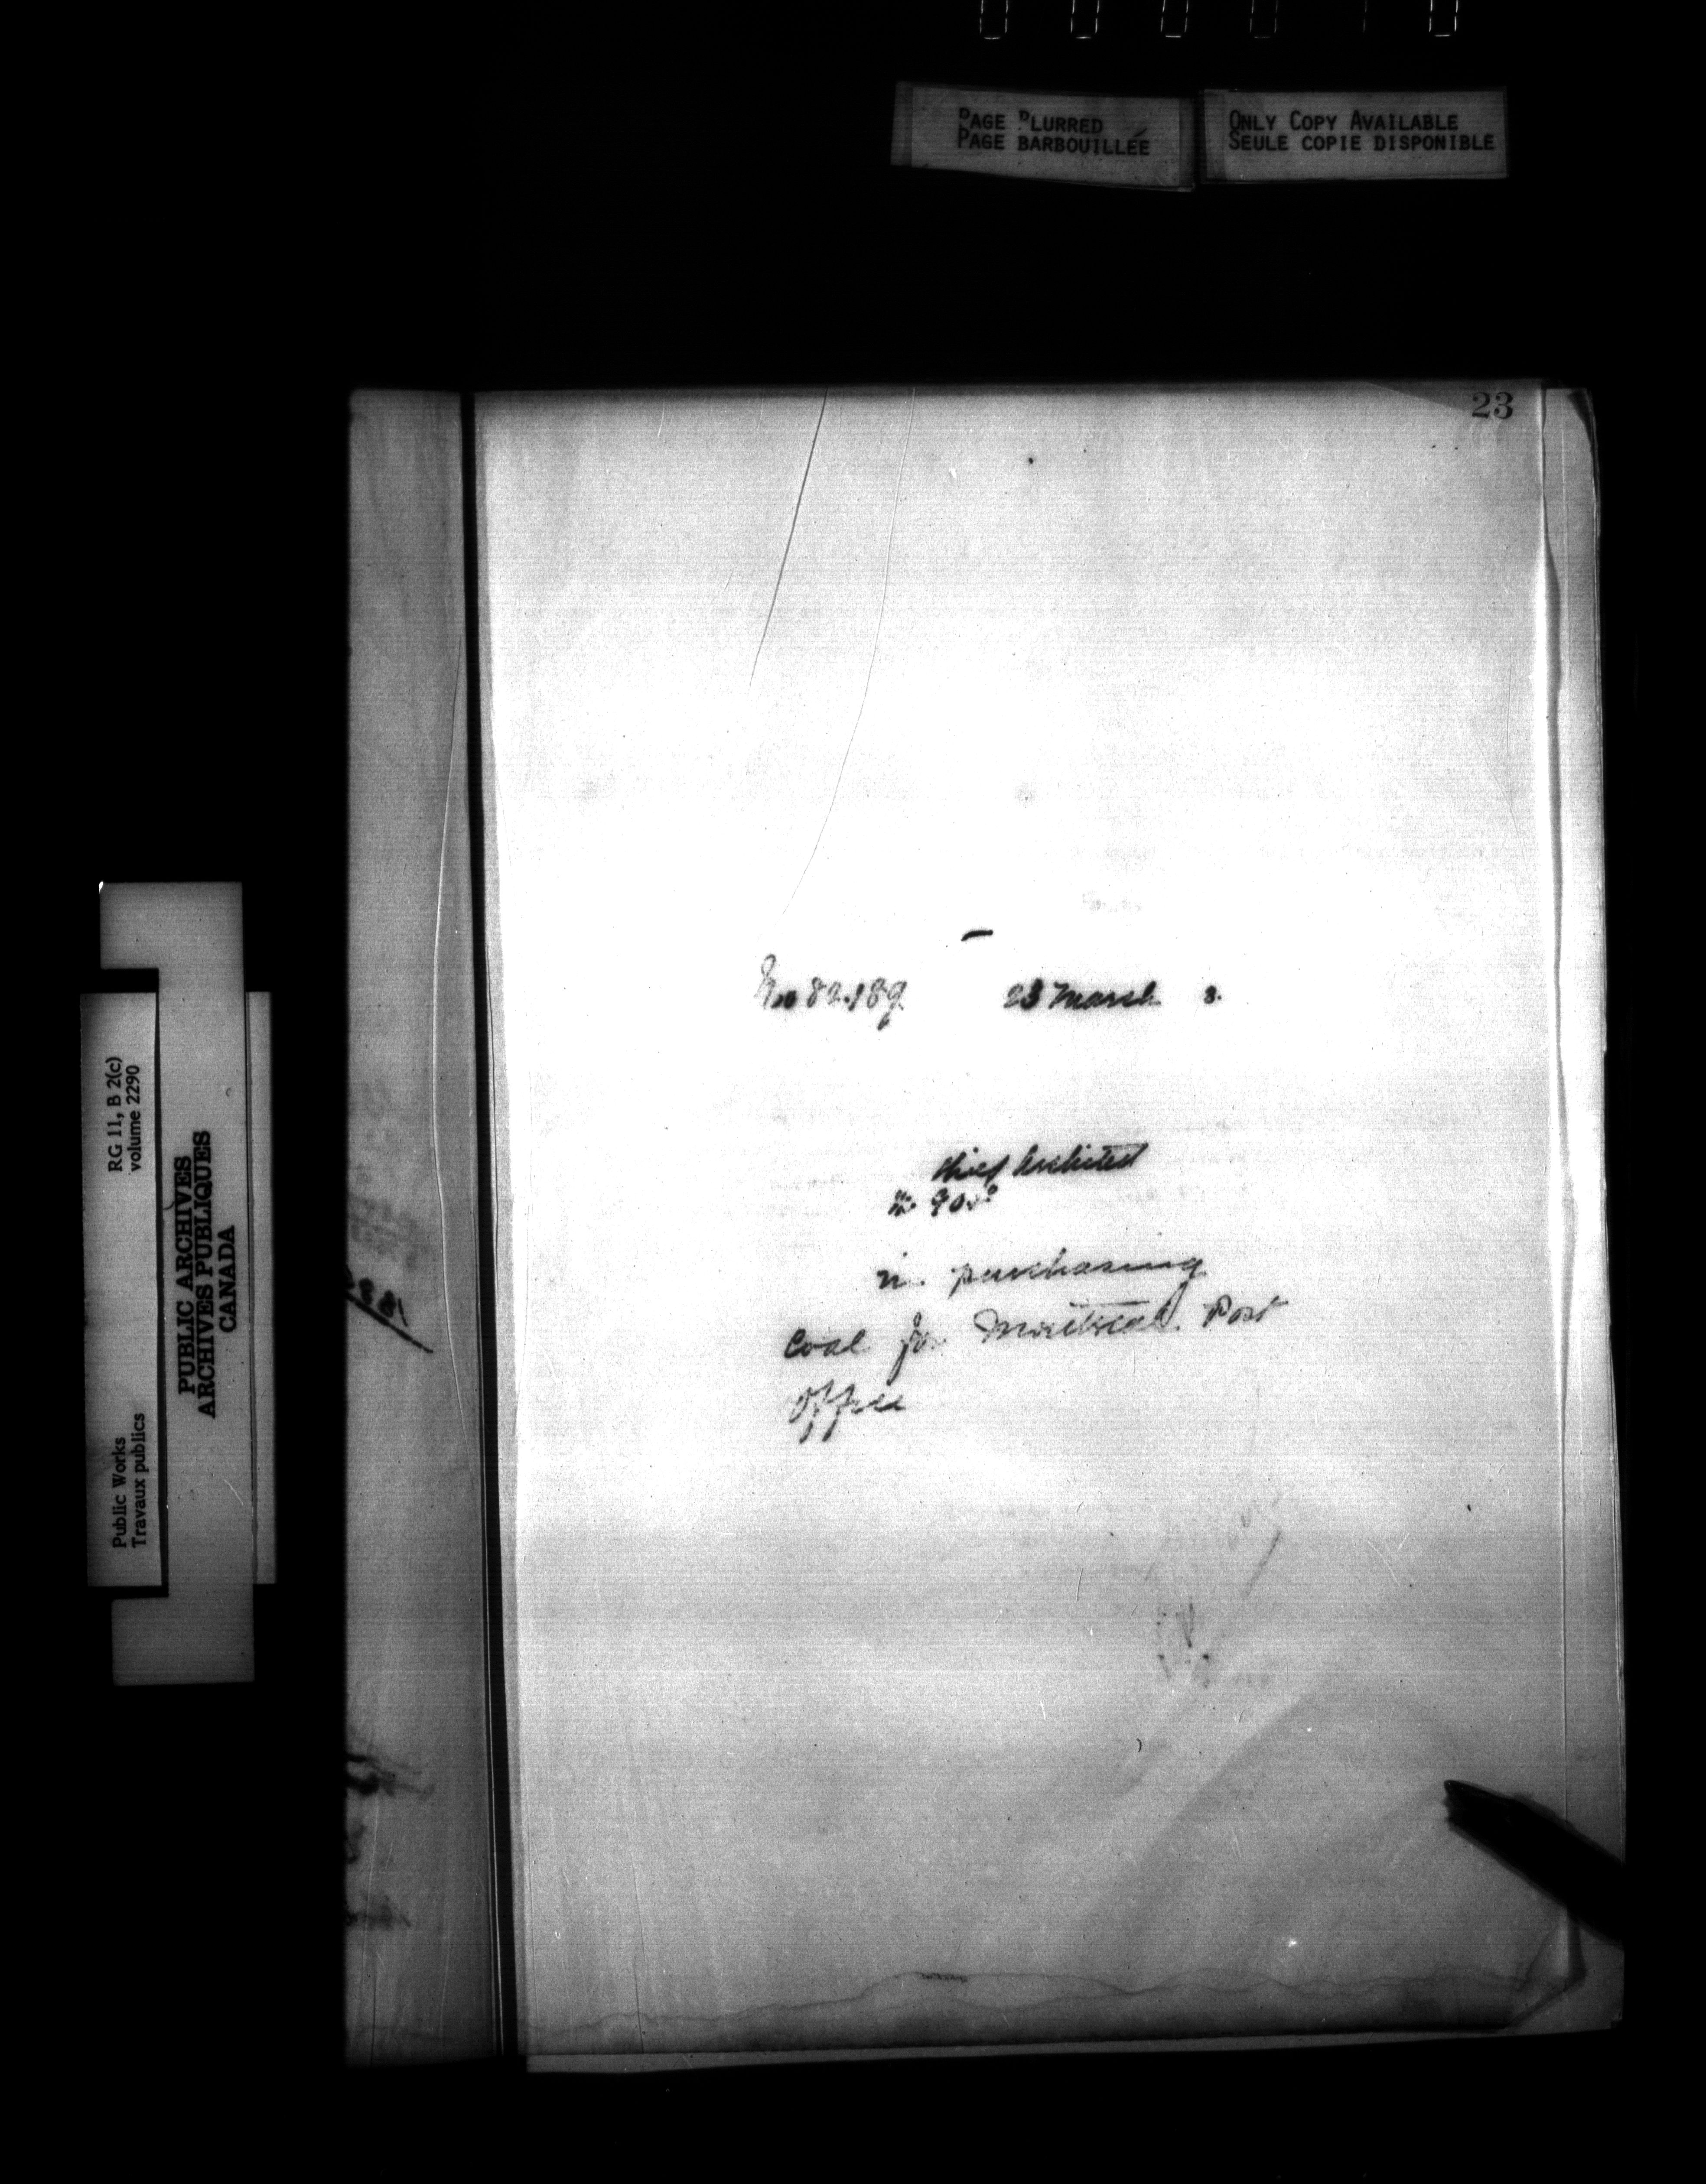 PAGE BLURRED
PAGE BARBOUILLÉE
ONLY COPY AVAILABLE
SEULE COPIE DISPONIBLE
23
No 82.189 23 March 8.
Chief Architect
purchasing
Coal for Montreal Post
Office
1881
RG 11, B 2(c)
volume 2290
Public Works
Travaux publics
PUBLIC ARCHIVES
ARCHIVES PUBLIQUES
CANADA